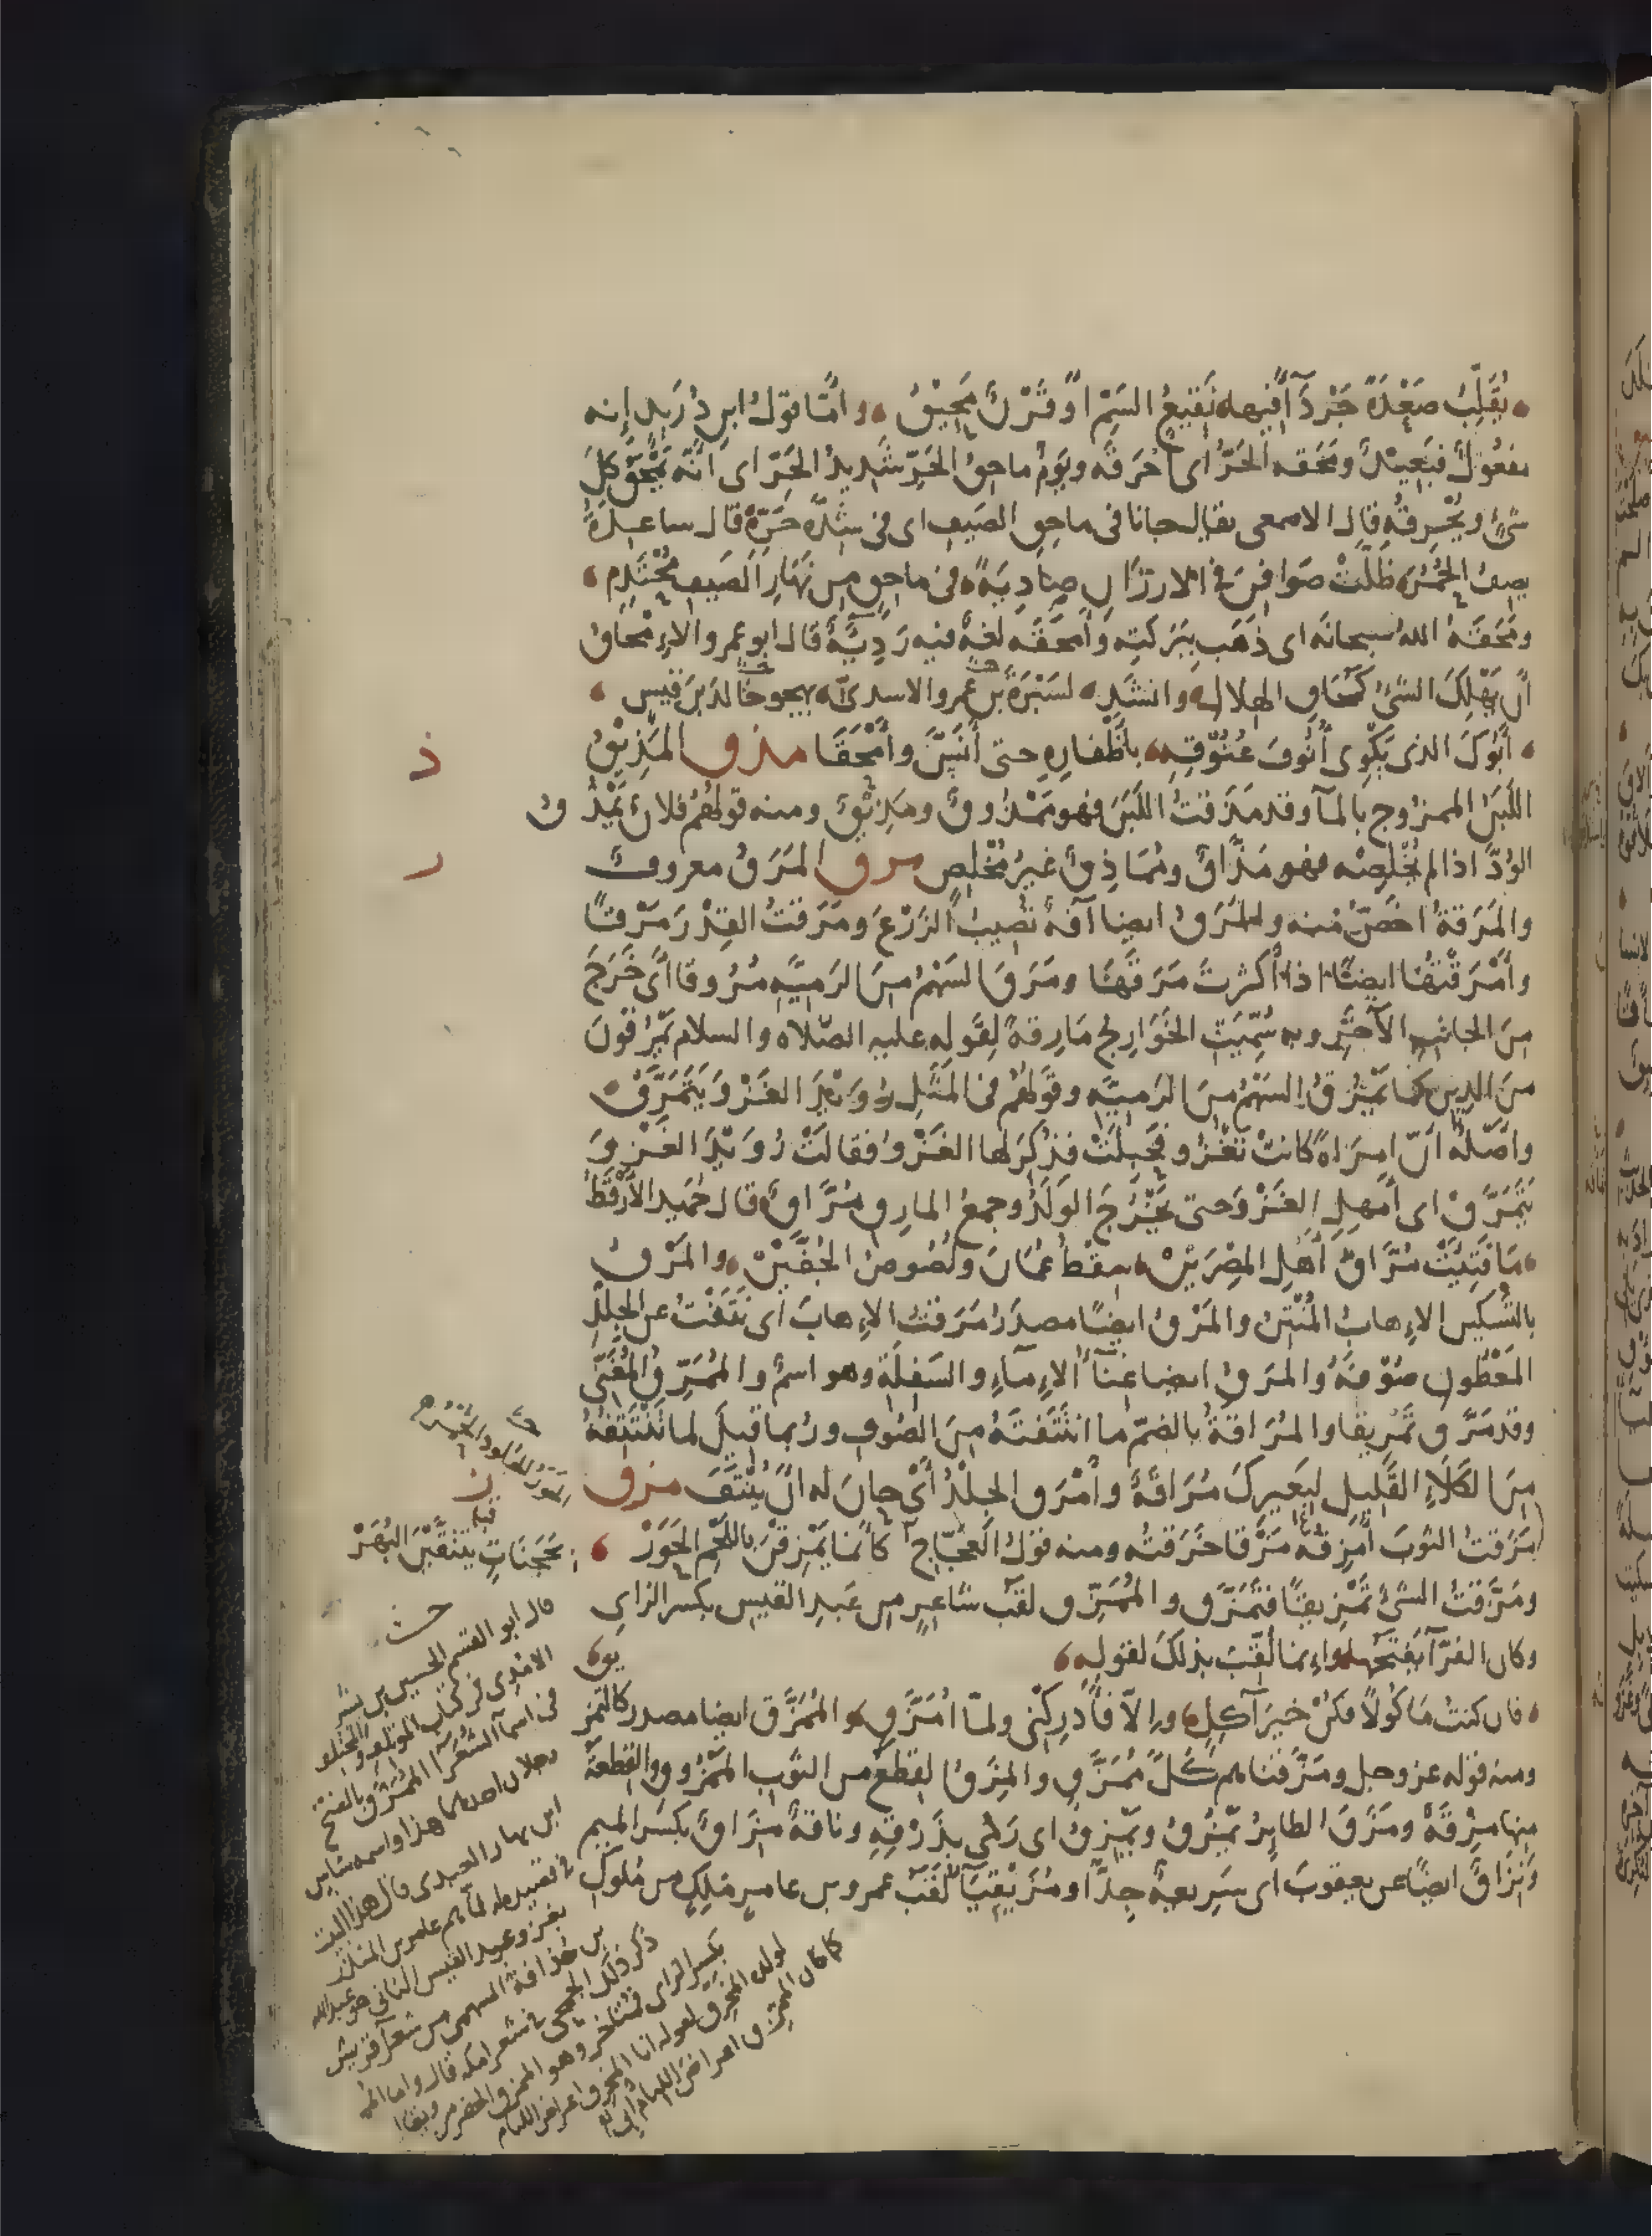 يُقَلِّبُ صَعْدَةً جَرْدَآءَ فِيها نَقِيعُ السَمِّ أَوْ قَرْنٌ مَحِيْقُ وأمّا قول ابن دُرَيد إنه
مفعُولٌ فبَعِيدٌ ومَحَقه الحَرُّ أى أحْرَقَه ويَوْمٌ ماحِقُ الحَرِّ شَدِيدُ الحَرّ اى انّه يَمْحَقُ كلَ
شىءٍ ويُحْرِقُهُ قال الاصمعى يقال جانا فى ماحِقِ الصَيفِ اى فى شِدّةِ حَرِّهِ قال ساعدةُ
يصِفُ الحُمُرَ ظَلَّتْ صَوَافِنَ فى الارْزَانِ صادِيَةً فى ماحِقٍ من نَهَارِ الصَيفِ مُحْتَدِمِ
ومَحَقَهُ اللهُ سبحانَه اى ذهَب بِبَركَتِهِ وأمْحَقَه لغةٌ فيه رَدِيَّةٌ قال ابو عمرو الاِمْحاقُ
أن يَهْلِكَ الشَىءُ كمُحَاقِ الهِلالِ وانشَد لسَبْرَةَ بن عَمرو الاسدىّ يهجو خالدَ بنَ قيس
أَبُوكَ الذى يَكْوِى أُنُوفَ عُنُوقِهِ بأظْفارِهِ حتى أَنَسَّ وأَمْحَقَا مذق المَذِيقُ
ذ
اللَبَنُ الممزُوج بالمآ وقد مَذَقتُ اللَبَنَ فهو مَمْذُوقٌ ومَذِيقٌ ومنه قولهُم فلانٌ يَمْذُقُ
الوُدَّ اذا لم يُخْلِصْه فهو مَذَّاقٌ ومُمَاذِقٌ غيرُ مُخْلِصٍ مرق المَرَقُ معروفٌ
ر
والمَرَقةُ اخَصُّ منه والمَرَقُ ايضا آفةٌ تُصِيبُ الزَرْعَ ومَرَقتُ القِدْرَ مَرْقًا
وأَمْرَقْتُهَا ايضًا اذا أكثرتَ مَرَقَهَا ومَرَقَ السَهْمُ مِنَ الرَمِيَّهِ مُرُوقا أى خَرَجَ
مِنَ الجانبِ الآخَرِ وبه سُمِّيَتِ الخَوَارِجُ مَارِقةً لِقَولِهِ عليه الصَلاه والسلام يَمْرُقُونَ
منَ الدِينِ كما يَمْرُقُ السَهْمُ مِنَ الرَمِيَّهِ وقَولهُم فى المَثَلِ رُوَيْدَ الغَزْوَ يَتَمَرَّقْ
واَصْلُه أنّ امرَاةً كانتْ تَغْزُو فحَبِلَتْ فذُكِرَ لها الغَزْوُ فقالَتْ رُوَيْدَ الغَزْوَ
يَتَمَرَّقْ اى أَمْهِلِ الغَزْوَ حتى يَخْرُجَ الوَلَدُ وجمعُ المارِق مُرَّاقٌ قال حُمَيد الأَرْقَطُ
مَا فَتِئَتْ مُرَّاقُ أَهْلِ المِصْرَيْنْ سِقْطُ عُمَانَ ولُصُوصُ الجُفَّيْنْ والمَرْقُ
بالتَسْكينِ الإِهابُ المُنْتِنُ والمَرْقُ ايضًا مصدَرُ مَرَقتُ الإِهابَ اى نَتَفْتُ عن الجِلْدِ
المَعْطُونِ صُوْفَهُ والمَرْقُ ايضا غِنآءُ الإِمآءِ والسَفِلَةِ وهو اسمٌ والمُمَرِّقُ المُغَنِّى
وقد مَرَّق تَمْرِيقا والمُرَاقةُ بالضمّ ما انْتَتَفتَهُ مِنَ الصُوفِ ورُبما قِيلَ لما تَنْتَتِفُهُ
مِنَ الكَلَإِ القَلِيلِ لبَعِيرِكَ مُرَاقَةٌ وأَمْرَق الجِلْدُ أَىْ حانَ له أَنْ يُنْتَفَ مزق
مَزَقتُ الثوبَ أَمْزِقُهُ مَزْقا خَرَقتُه ومنه قولُ العَجّاج كأنّما يَمْزِقْنَ باللَحْمِ الحَوَرْ
ومَزَّقتُ الشىءَ تَمْزِيقًا فتَمَزَّق والمُمَزِّق لقَب شاعِرٍ من عَبدِ القيسِ بكسر الزاى
وكان الفرّآ يَفْتَحُها وإنما لُقِّبَ بذلكَ لقولِه
فان كنتُ مَاكُولاً فكُنْ خيرَ آكِلِ وإلاّ فأَدْرِكْنى ولمّا أُمَزَّقِ والمُمَزَّق ايضا مصدر كالتَمْز يق
ومنه قوله عز وجل ومَزَّقناهم كُلَّ مُمَزَّقٍ والمِزَقُ القِطَعُ من الثَوب المَمْزُوق والقِطعةُ
منها مِزْقَةٌ ومَزَقَ الطايرُ يَمْزُقُ ويَمْزِقُ اى رَمَى بذَرْقِهِ وناقةٌ مِزَاقٌ بكسَر الميم
ونِزَاقٌ ايضًا عن يعقوبَ اى سَرِيعةٌ جِدًّا ومُزَيْقِيَآ لقَبُ عمرو بن عامرٍ مَلِكٍ من مُلوكِ
ز
قبله
بحَجِنَاتٍ يتثَقَّبْنَ البُهَرْ
حـ
قال ابو القسم الحسين بن بشر
الامدى فى كتاب المؤتلف والمختلف
فى اسمآ الشُعَرآ المُمَزَّق بالفتح
رجلان احدهما هذا واسمه شاس
ابن نهار العبدى قال هذا البيت
فى قصيده له لمآ هم عامر بن المنذر
بغزو عبد القيس الثانى هو عبد الله
بن حُذافة السهمى من شعرآ قريش
ذكر ذلك الجمحى فى شعرا مكه قال واما المم
بكسر الزاى فمتاخر وهو الممزق الحضرمى
لولده المخرق لقوله انا المخرق اعراض اللئام
كما كان الممزق اعراض اللئام ابى